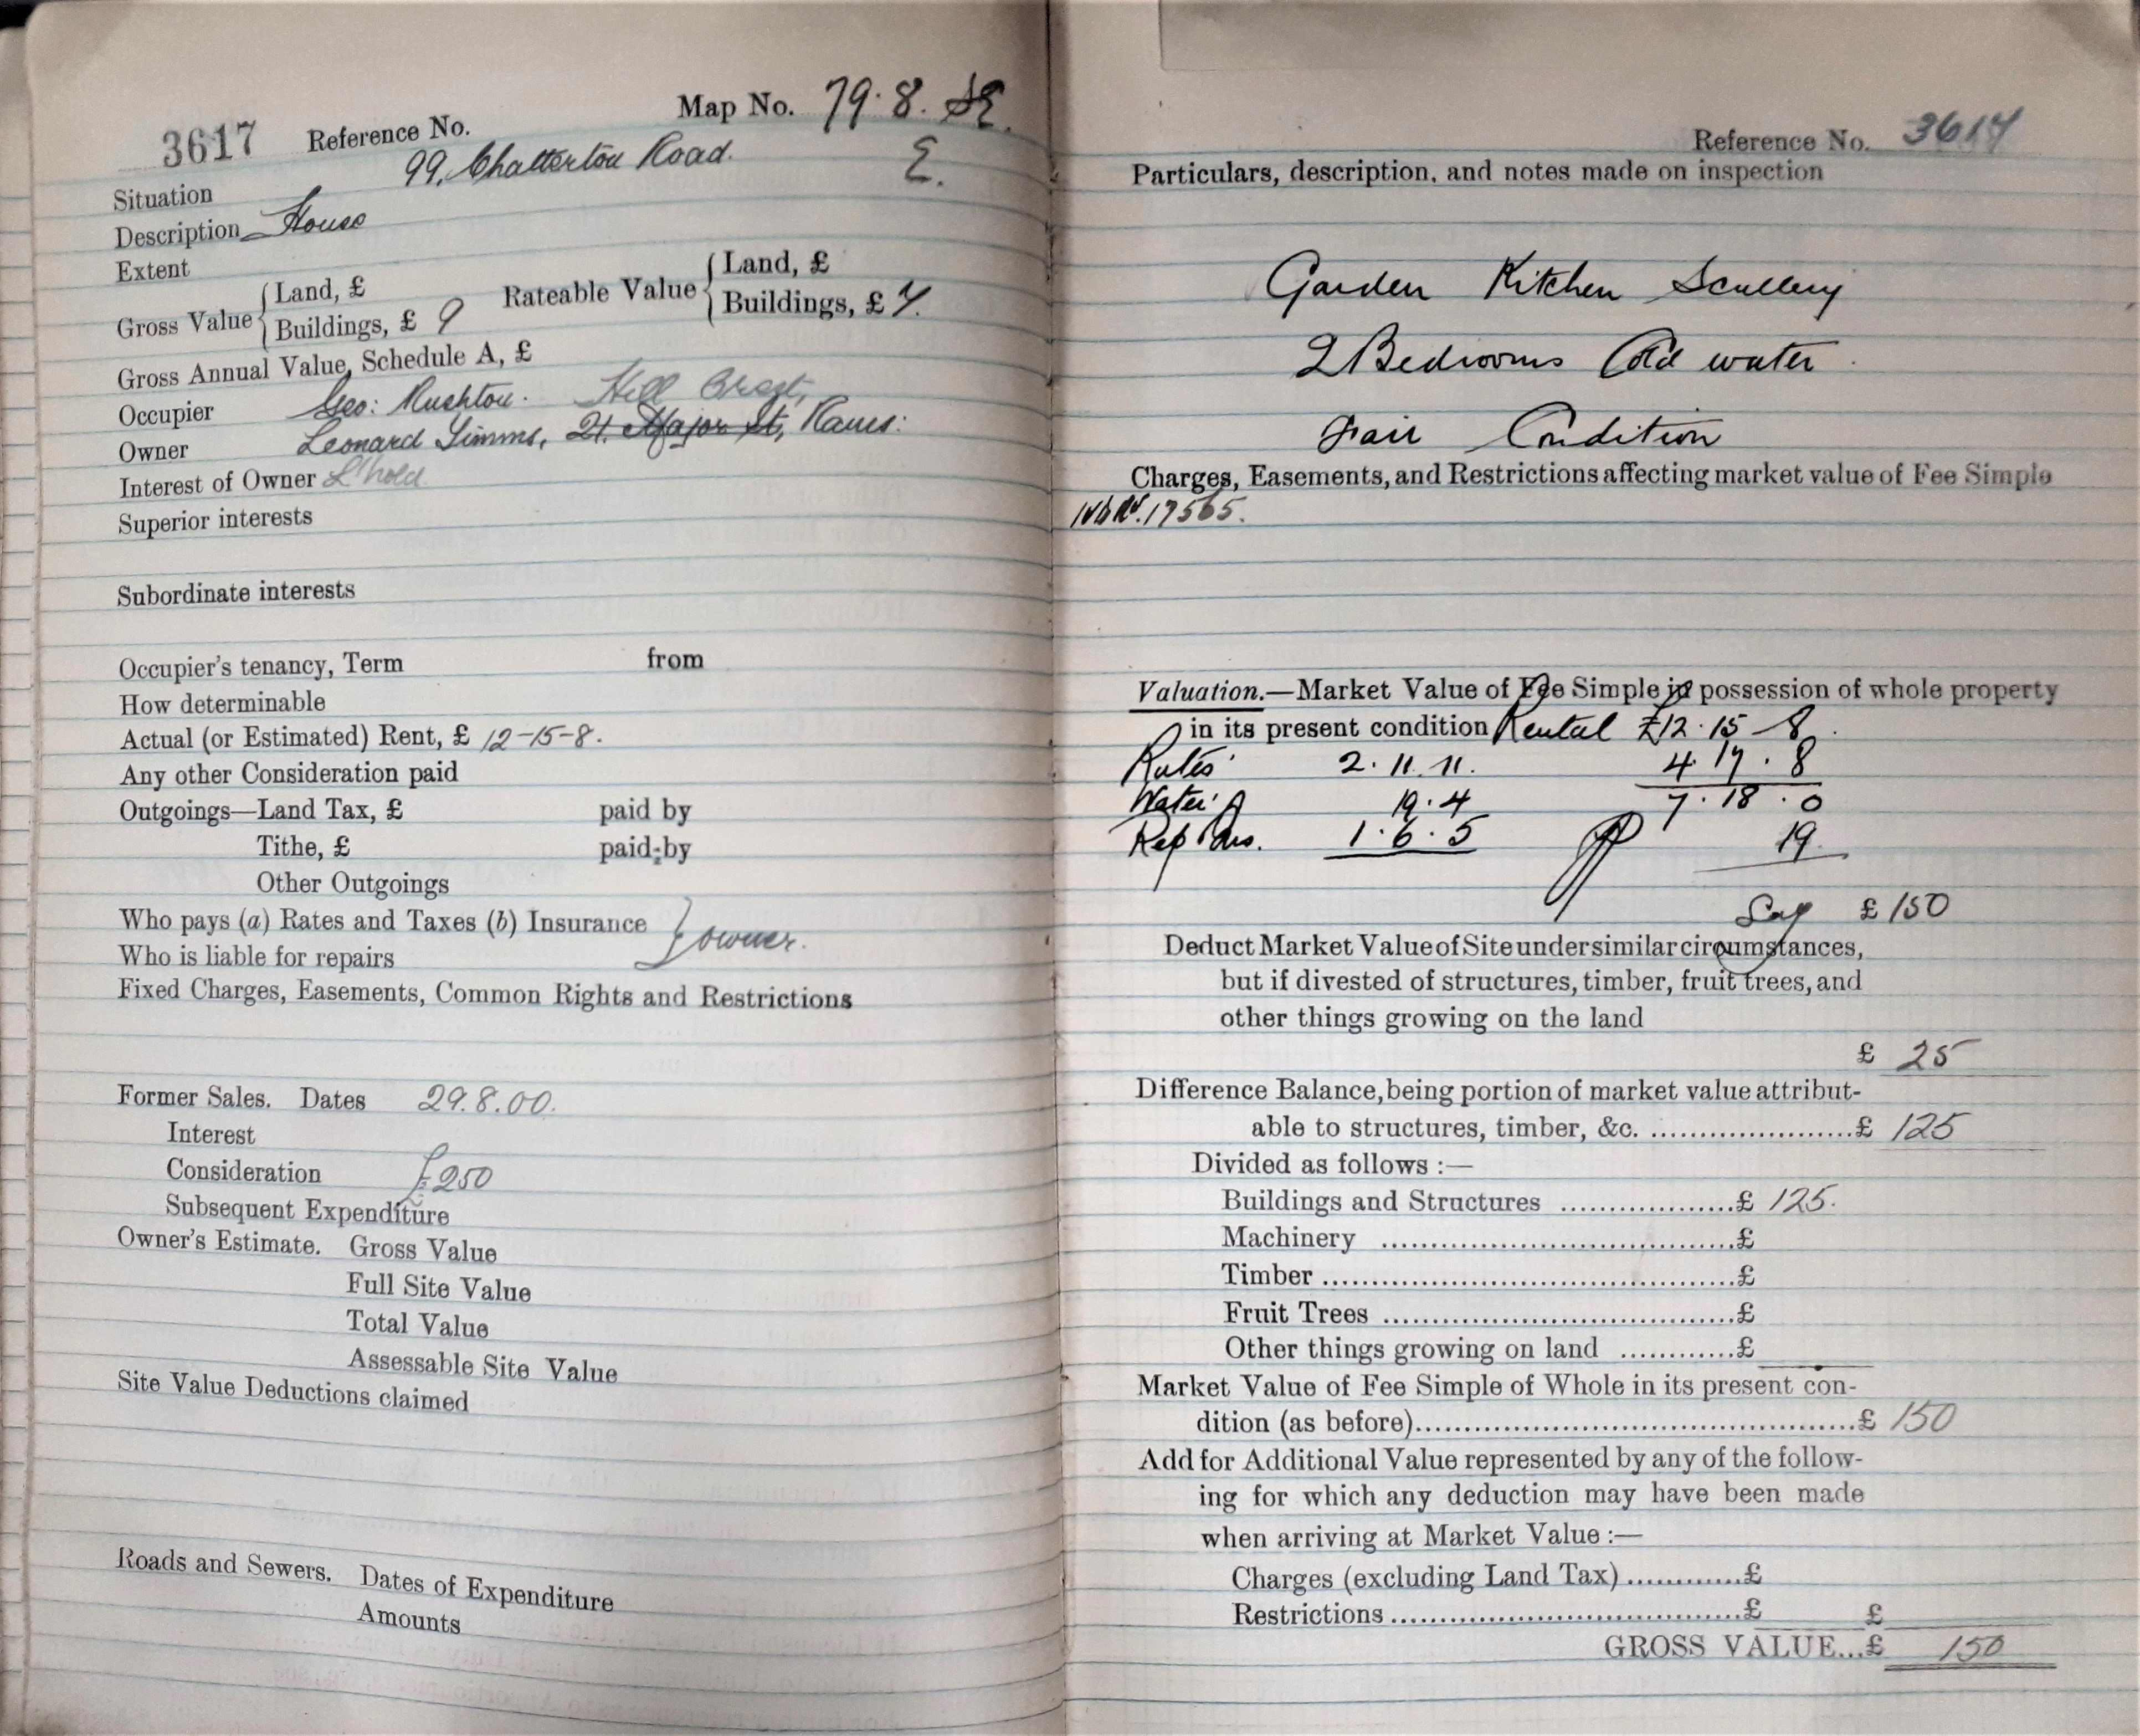 3617 Reference No. Map No. 79.8. SE.
Situation 99, Chatterton Road. E.
Description House
Extent
Gross Value { Land, £
Buildings, £ 9
Rateable Value { Land, £
Buildings, £ 7.
Gross Annual Value, Schedule A, £
Occupier Geo: Rushton. Hill
Owner Leonard Simms, 21. Major St, Rams:
Interest of Owner L'hold
Superior interests
Subordinate interests
Occupier's tenancy, Term from
How determinable
Actual (or Estimated) Rent, £ 12-15-8.
Any other Consideration paid
Outgoings—Land Tax, £ paid by
Tithe, £ paid by
Other Outgoings
Who pays (a) Rates and Taxes (b) Insurance } owner.
Who is liable for repairs
Fixed Charges, Easements, Common Rights and Restrictions
Former Sales. Dates 29.8.00.
Interest
Consideration £250
Subsequent Expenditure
Owner's Estimate. Gross Value
Full Site Value
Total Value
Assessable Site Value
Site Value Deductions claimed
Roads and Sewers. Dates of Expenditure
Amounts
Reference No. 3617
Particulars, description, and notes made on inspection
Garden Kitchen Scullery
2 Bedrooms Cold water
Fair Condition
Charges, Easements, and Restrictions affecting market value of Fee Simple
17565.
Valuation.—Market Value of Fee Simple in possession of whole property
in its present condition Rental £12.15-8.
Rates 2.11.11. 4.17.8
Water 19.4 7.18.0
1.6.5 19
Say £150
Deduct Market Value of Site under similar circumstances,
but if divested of structures, timber, fruit trees, and
other things growing on the land
£ 25
Difference Balance, being portion of market value attribut-
able to structures, timber, &c. ......................£ 125
Divided as follows :—
Buildings and Structures ...................£ 125.
Machinery ......................................£
Timber .............................................£
Fruit Trees ......................................£
Other things growing on land ............£
Market Value of Fee Simple of Whole in its present con-
dition (as before)................................................£ 150
Add for Additional Value represented by any of the follow-
ing for which any deduction may have been made
when arriving at Market Value :—
Charges (excluding Land Tax).............£
Restrictions.......................................£ £
GROSS VALUE...£ 150